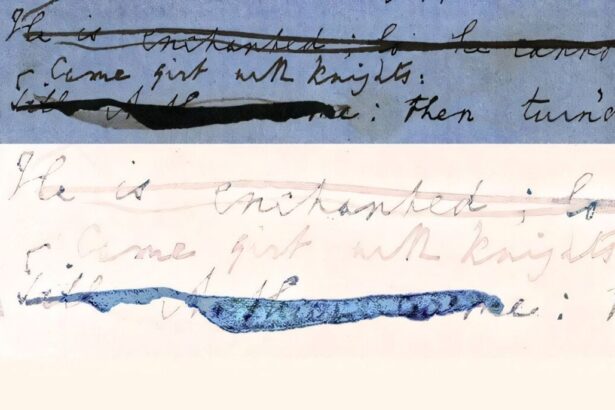 He is enchanted; so he canno
Came girt with knights:
: then turn'd
He is enchanted; so
Came girt with knights
came :